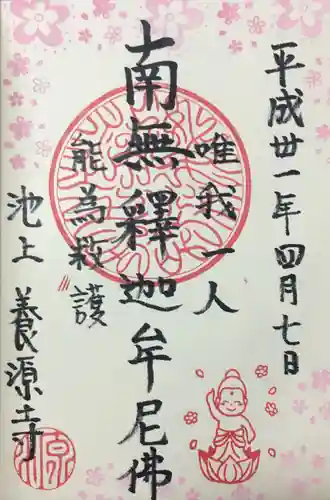 平成卅一年四月七日
唯我一人
南無釋迦牟尼佛
能為救護
池上 養源寺
源